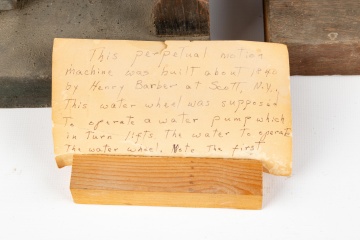 This perpetual motion
machine was built about 1840
by Henry Barber at Scott, N.Y.,
This water wheel was supposed
to operate a water pump which
in turn lifts the water to operate
the water wheel. Note the first